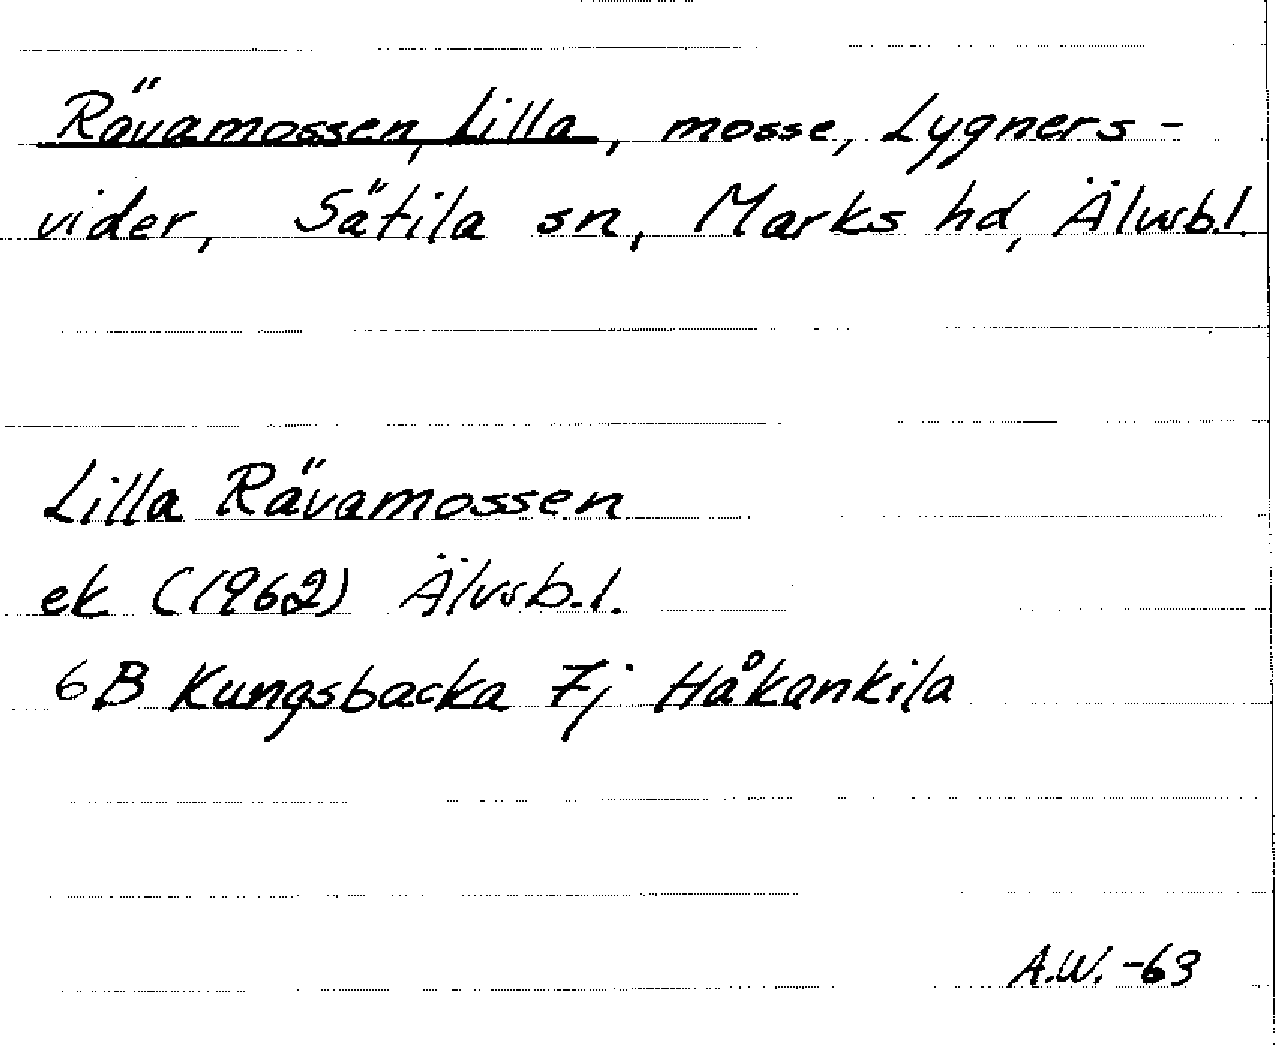 Rävamossen, Lilla, mosse, Lygners-
vider, Sätila sn, Marks hd, Älvsb.l.
Lilla Rävamossen
ek (1962) Älvsb.l.
6B Kungsbacka 7j Håkankila
A.W. -63